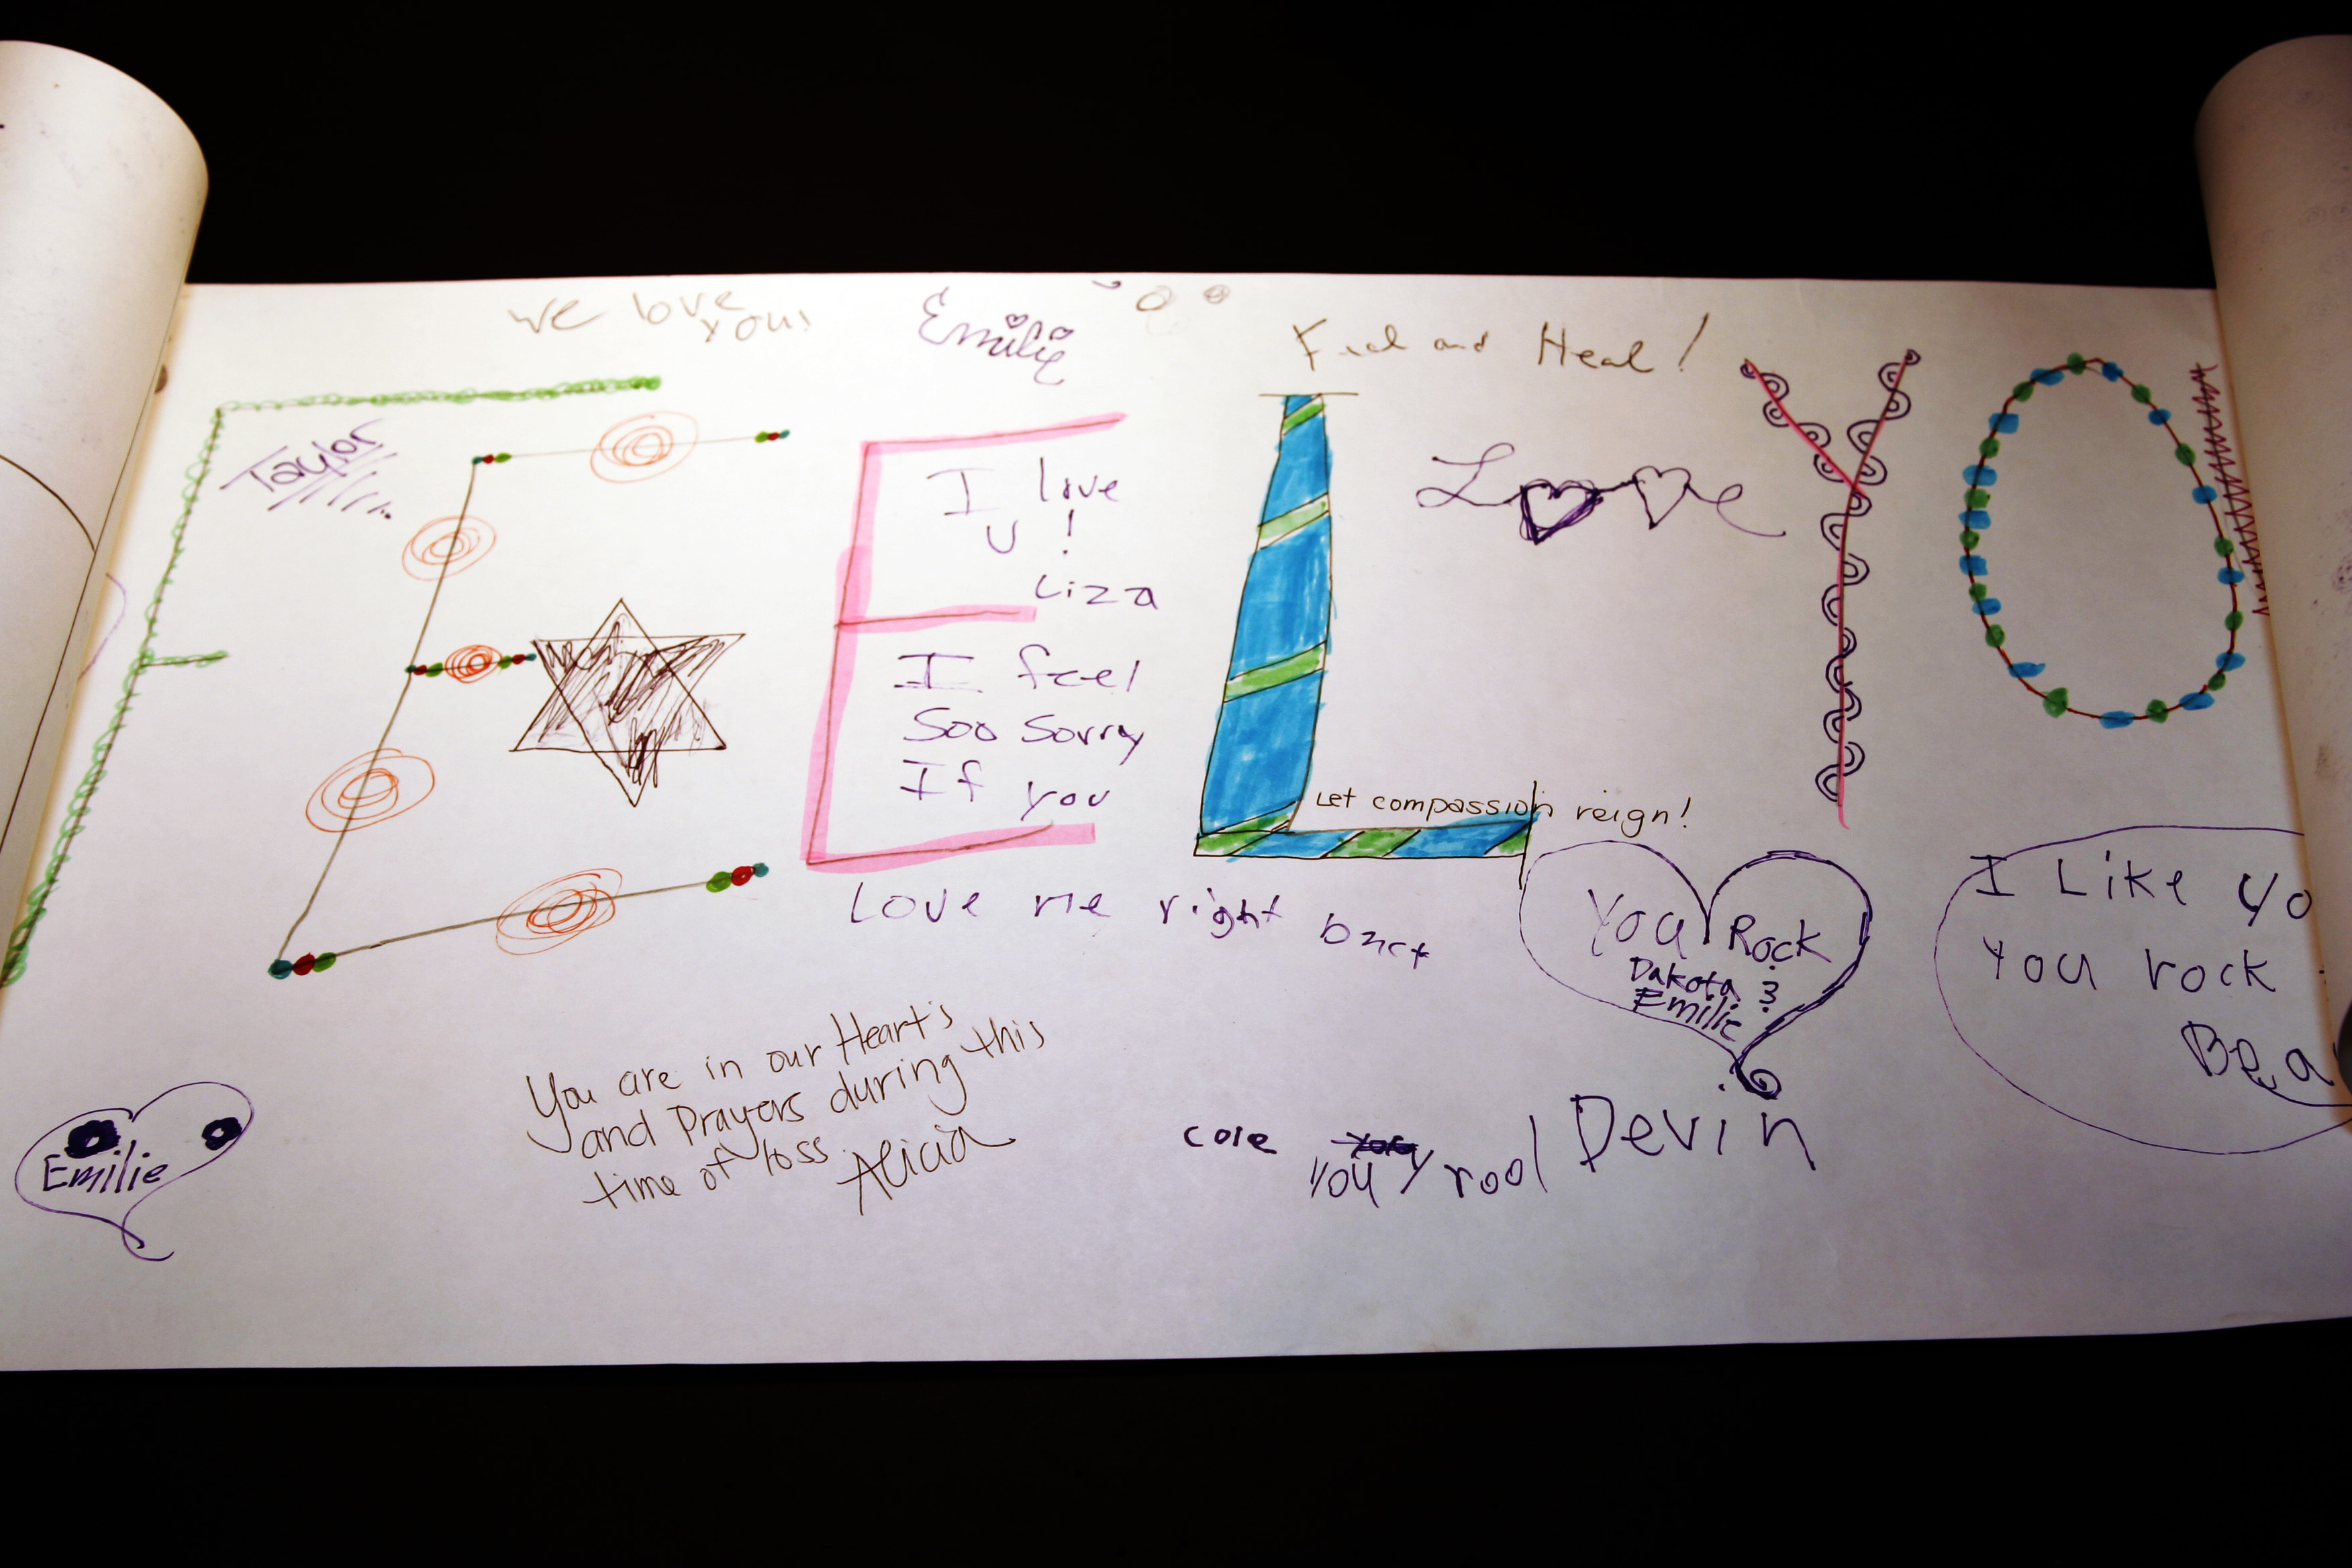 We love
you!
Emilie
Feel and Heal!
Taylor
FEEL YO
I love
U!
Liza
I feel
Soo Sorry
If you
Love me right back
Love
Let compassion reign!
You Rock
Dakota &
Emilie
I Like yo
You rock
Be a
You are in our Heart's
and Prayers during this
time of loss.
Alicia
Emilie
cole
you rool Devin